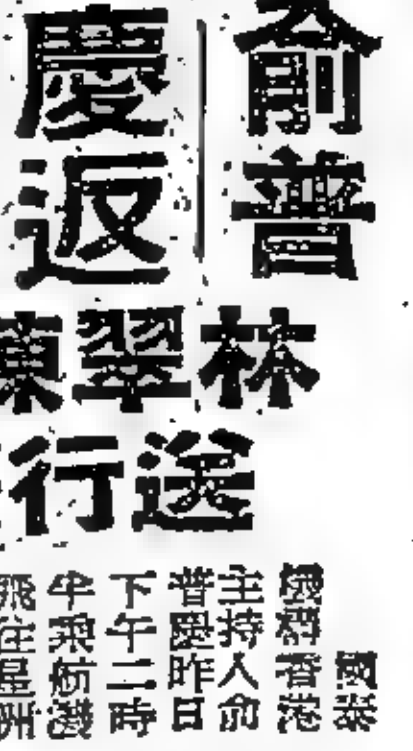 俞普
慶返
林翠陳
送行
國泰
機構香港
主持人俞
普慶昨日
下午二時
半乘航機
飛往星洲